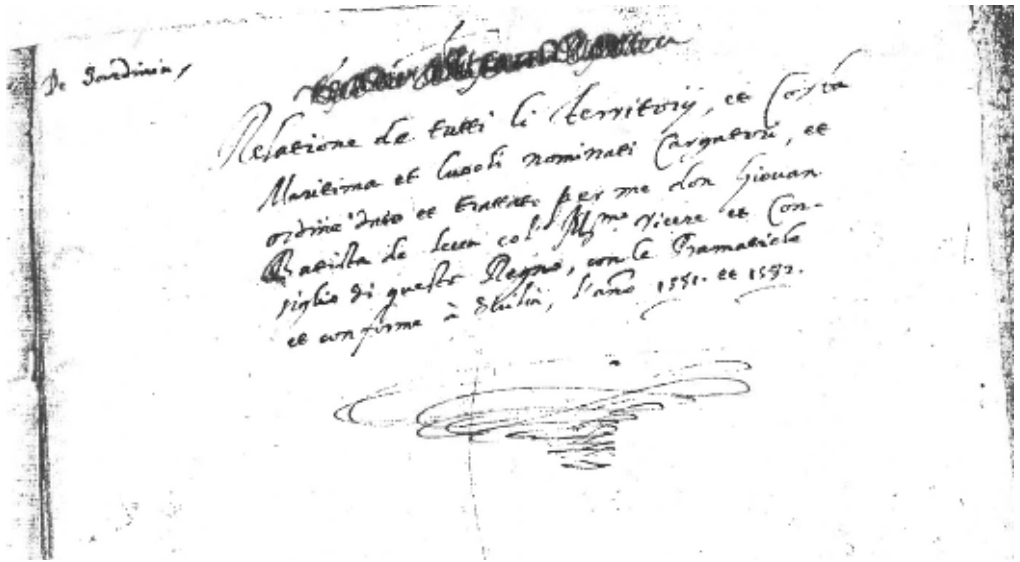 De Sardinia,
Relatione de tutti li territorij, et Costa
Maritima et luochi nominati Cargatori, et
ordine dato et trattato per me don Giouan
Batista de col Ill.mo Vicere et Con-
siglio di questo Regno, con le Pramatiche
et conforme à l'año 1551. et 1552.